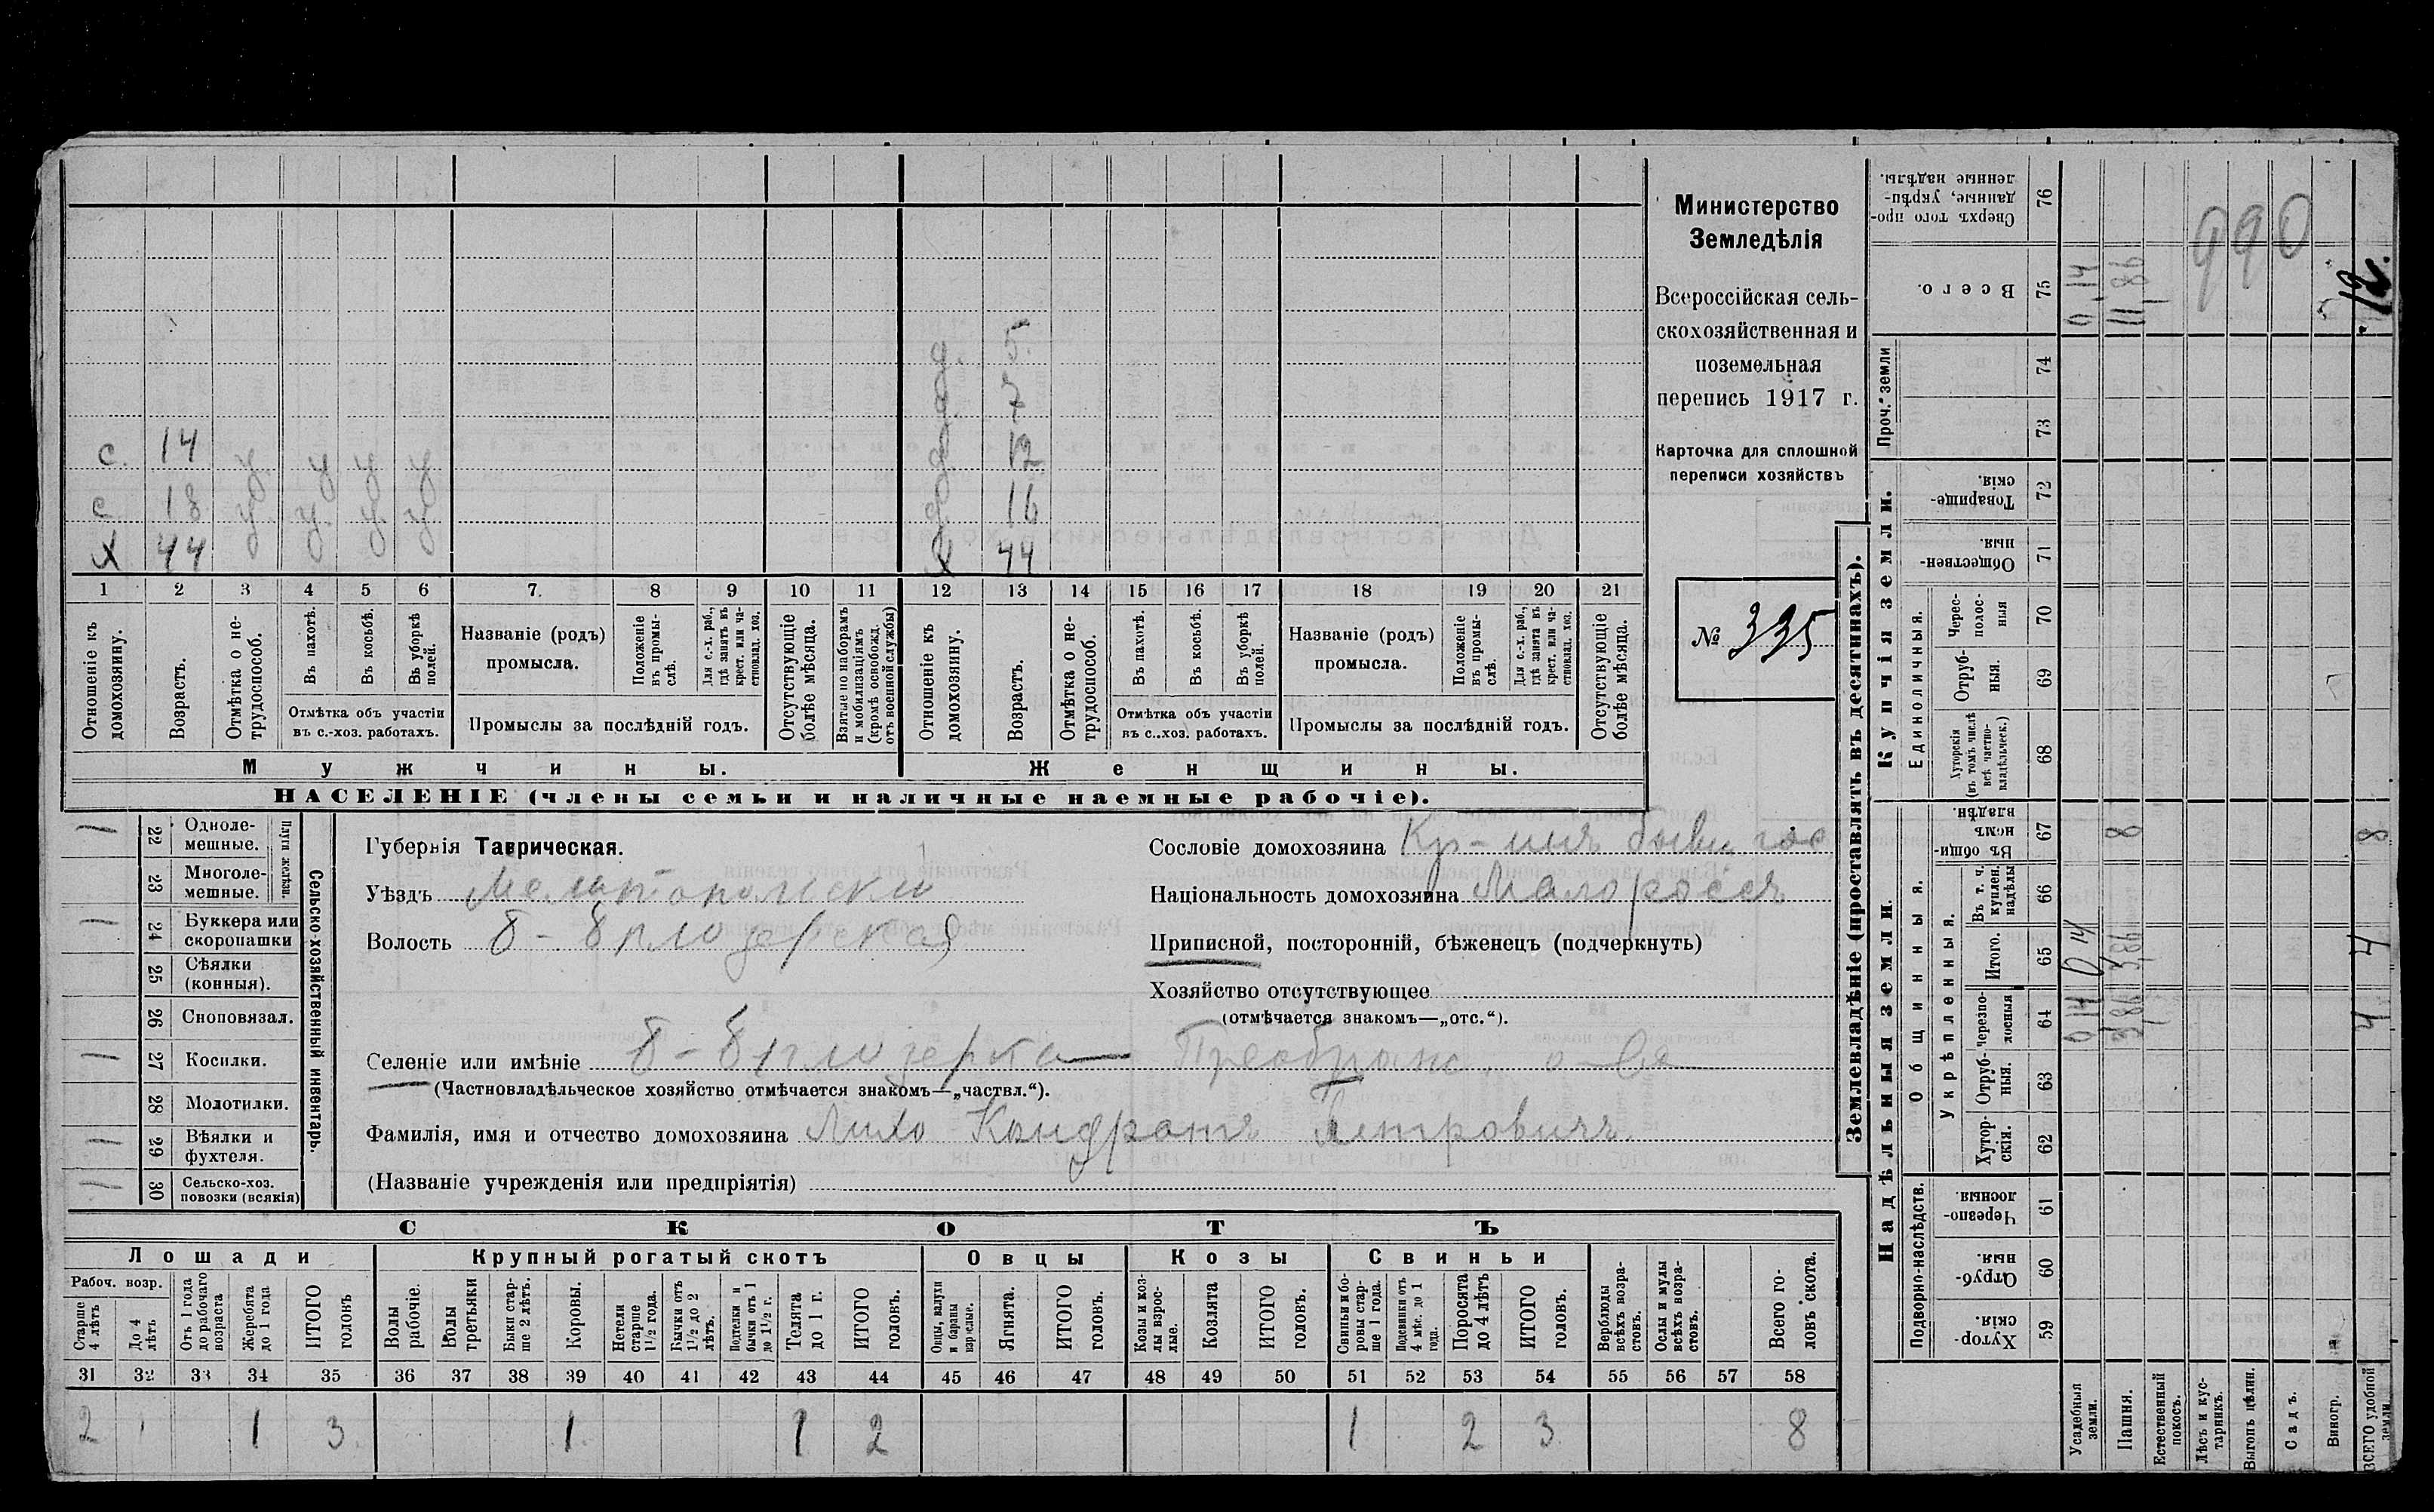 Министерство
Земледѣлія
Всероссійская сель-
скохозяйственная и
поземельная
перепись 1917 г.
Карточка для сплошной
переписи хозяйствъ
№ 335
с. 14 у. у у у д. 5.
д. 7
д. 12
с 18 у. у. у. у д. 16
х 44 х 44
1 2 3 4 5 6 7. 8 9 10 11 12 13 14 15 16 17 18 19 20 21
Отношеніе къ домохозяину.
Возрастъ.
Отмѣтка о не-трудоспособ.
Въ пахотѣ.
Въ косьбѣ.
Въ уборкѣ полей.
Отмѣтка объ участіи въ с.-хоз. работахъ.
Названіе (родъ) промысла.
Положеніе въ промы-слѣ.
Для с.-х. раб., гдѣ занятъ въ крест. или ча-стновлад. хоз.
Промыслы за послѣдній годъ.
Отсутствующіе болѣе мѣсяца.
Взятые по наборамъ и мобилизаціямъ (кромѣ освобожд. отъ военной службы)
Отношеніе къ домохозяину.
Возрастъ.
Отмѣтка о не-трудоспособ.
Въ пахотѣ.
Въ косьбѣ.
Въ уборкѣ полей.
Отмѣтка объ участіи въ с..хоз. работахъ.
Названіе (родъ) промысла.
Положеніе въ промы-слѣ.
Для с.-х. раб., гдѣ занята въ крест. или ча-стновлад. хоз.
Промыслы за послѣдній годъ.
Отсутствующіе болѣе мѣсяца.
Мужчины. Женщины.
НАСЕЛЕНІЕ (члены семьи и наличные наемные рабочіе).
Сельско-хозяйственный инвентарь.
Плуги желѣзн.
1 22 Одноле-мешные.
23 Многоле-мешные.
1 24 Буккера или скоропашки
25 Сѣялки (конныя).
26 Сноповязал.
1 27 Косилки.
28 Молотилки.
1 29 Вѣялки и фухтеля.
1 30 Сельско-хоз. повозки (всякія)
Губернія Таврическая.
Уѣздъ Мелитопольски
Волость Б-Бѣлозерская
Селеніе или имѣніе Б-Бѣлозерка Преображ. о-ва
(Частновладѣльческое хозяйство отмѣчается знакомъ—„частвл.“).
Фамилія, имя и отчество домохозяина Лихо Кондратъ Петровичъ.
(Названіе учрежденія или предпріятія)
Сословіе домохозяина Кр-инъ бывш гос.
Національность домохозяина Малороссъ
Приписной, посторонній, бѣженецъ (подчеркнуть)
Хозяйство отсутствующее
(отмѣчается знакомъ—„отс.“).
СКОТЪ
Лошади Крупный рогатый скотъ Овцы Козы Свиньи
Рабоч. возр.
Старше 4 лѣтъ
До 4 лѣтъ
Отъ 1 года до рабочаго возраста
Жеребята до 1 года
ИТОГО головъ
Волы рабочіе.
Волы третьяки
Быки стар-ше 2 лѣтъ.
Коровы.
Нетели старше 1½ года.
Бычки отъ 1½ до 2 лѣтъ.
Подтелки и бычки отъ 1 до 1½ г.
Телята до 1 г.
ИТОГО головъ.
Овцы, валухи и бараны взрослые.
Ягнята.
ИТОГО головъ.
Козы и коз-лы взрос-лые.
Козлята
ИТОГО головъ.
Свиньи и бо-ровы стар-ше 1 года.
Подсвинки отъ 4 мѣс. до 1 года.
Поросята до 4 лѣтъ
ИТОГО головъ.
Верблюды всѣхъ возра-стовъ.
Ослы и мулы всѣхъ возра-стовъ.
Всего го-ловъ скота.
31 32 33 34 35 36 37 38 39 40 41 42 43 44 45 46 47 48 49 50 51 52 53 54 55 56 57 58
2 1 3 1 1 2 1 2 3 8
Землевладѣніе (проставлять въ десятинахъ).
Надѣльныя земли. Купчія земли. Проч. земли
Подворно-наслѣдств. Общинныя. Единоличныя.
Укрѣпленныя.
Хутор-скія. 59
Отруб-ныя 60
Черезпо-лосныя 61
Хутор-скія. 62
Отруб-ныя. 63
Черезпо-лосныя 64
Итого. 65
Въ т. ч. куплен. надѣлы 66
Въ общи-номъ владѣн. 67
Хуторскія (въ томъ числѣ всѣ частно-владѣльческ.) 68
Отруб-ныя. 69
Черес-полос-ныя 70
Обществен-ныя. 71
Товарище-скія. 72
73
74
Всего. 75
Сверхъ того про-данные, укрѣп-ленные надѣлы. 76
Усадебныя земли. 0,14 0,14 0,14
Пашня. 3,86 3,86 8 11,86
Естественный покосъ.
Лѣсъ и кус-тарникъ.
Выгонъ цѣлин.
Садъ.
Виногр.
ВСЕГО удобной земли. 4 4 8 12.
990